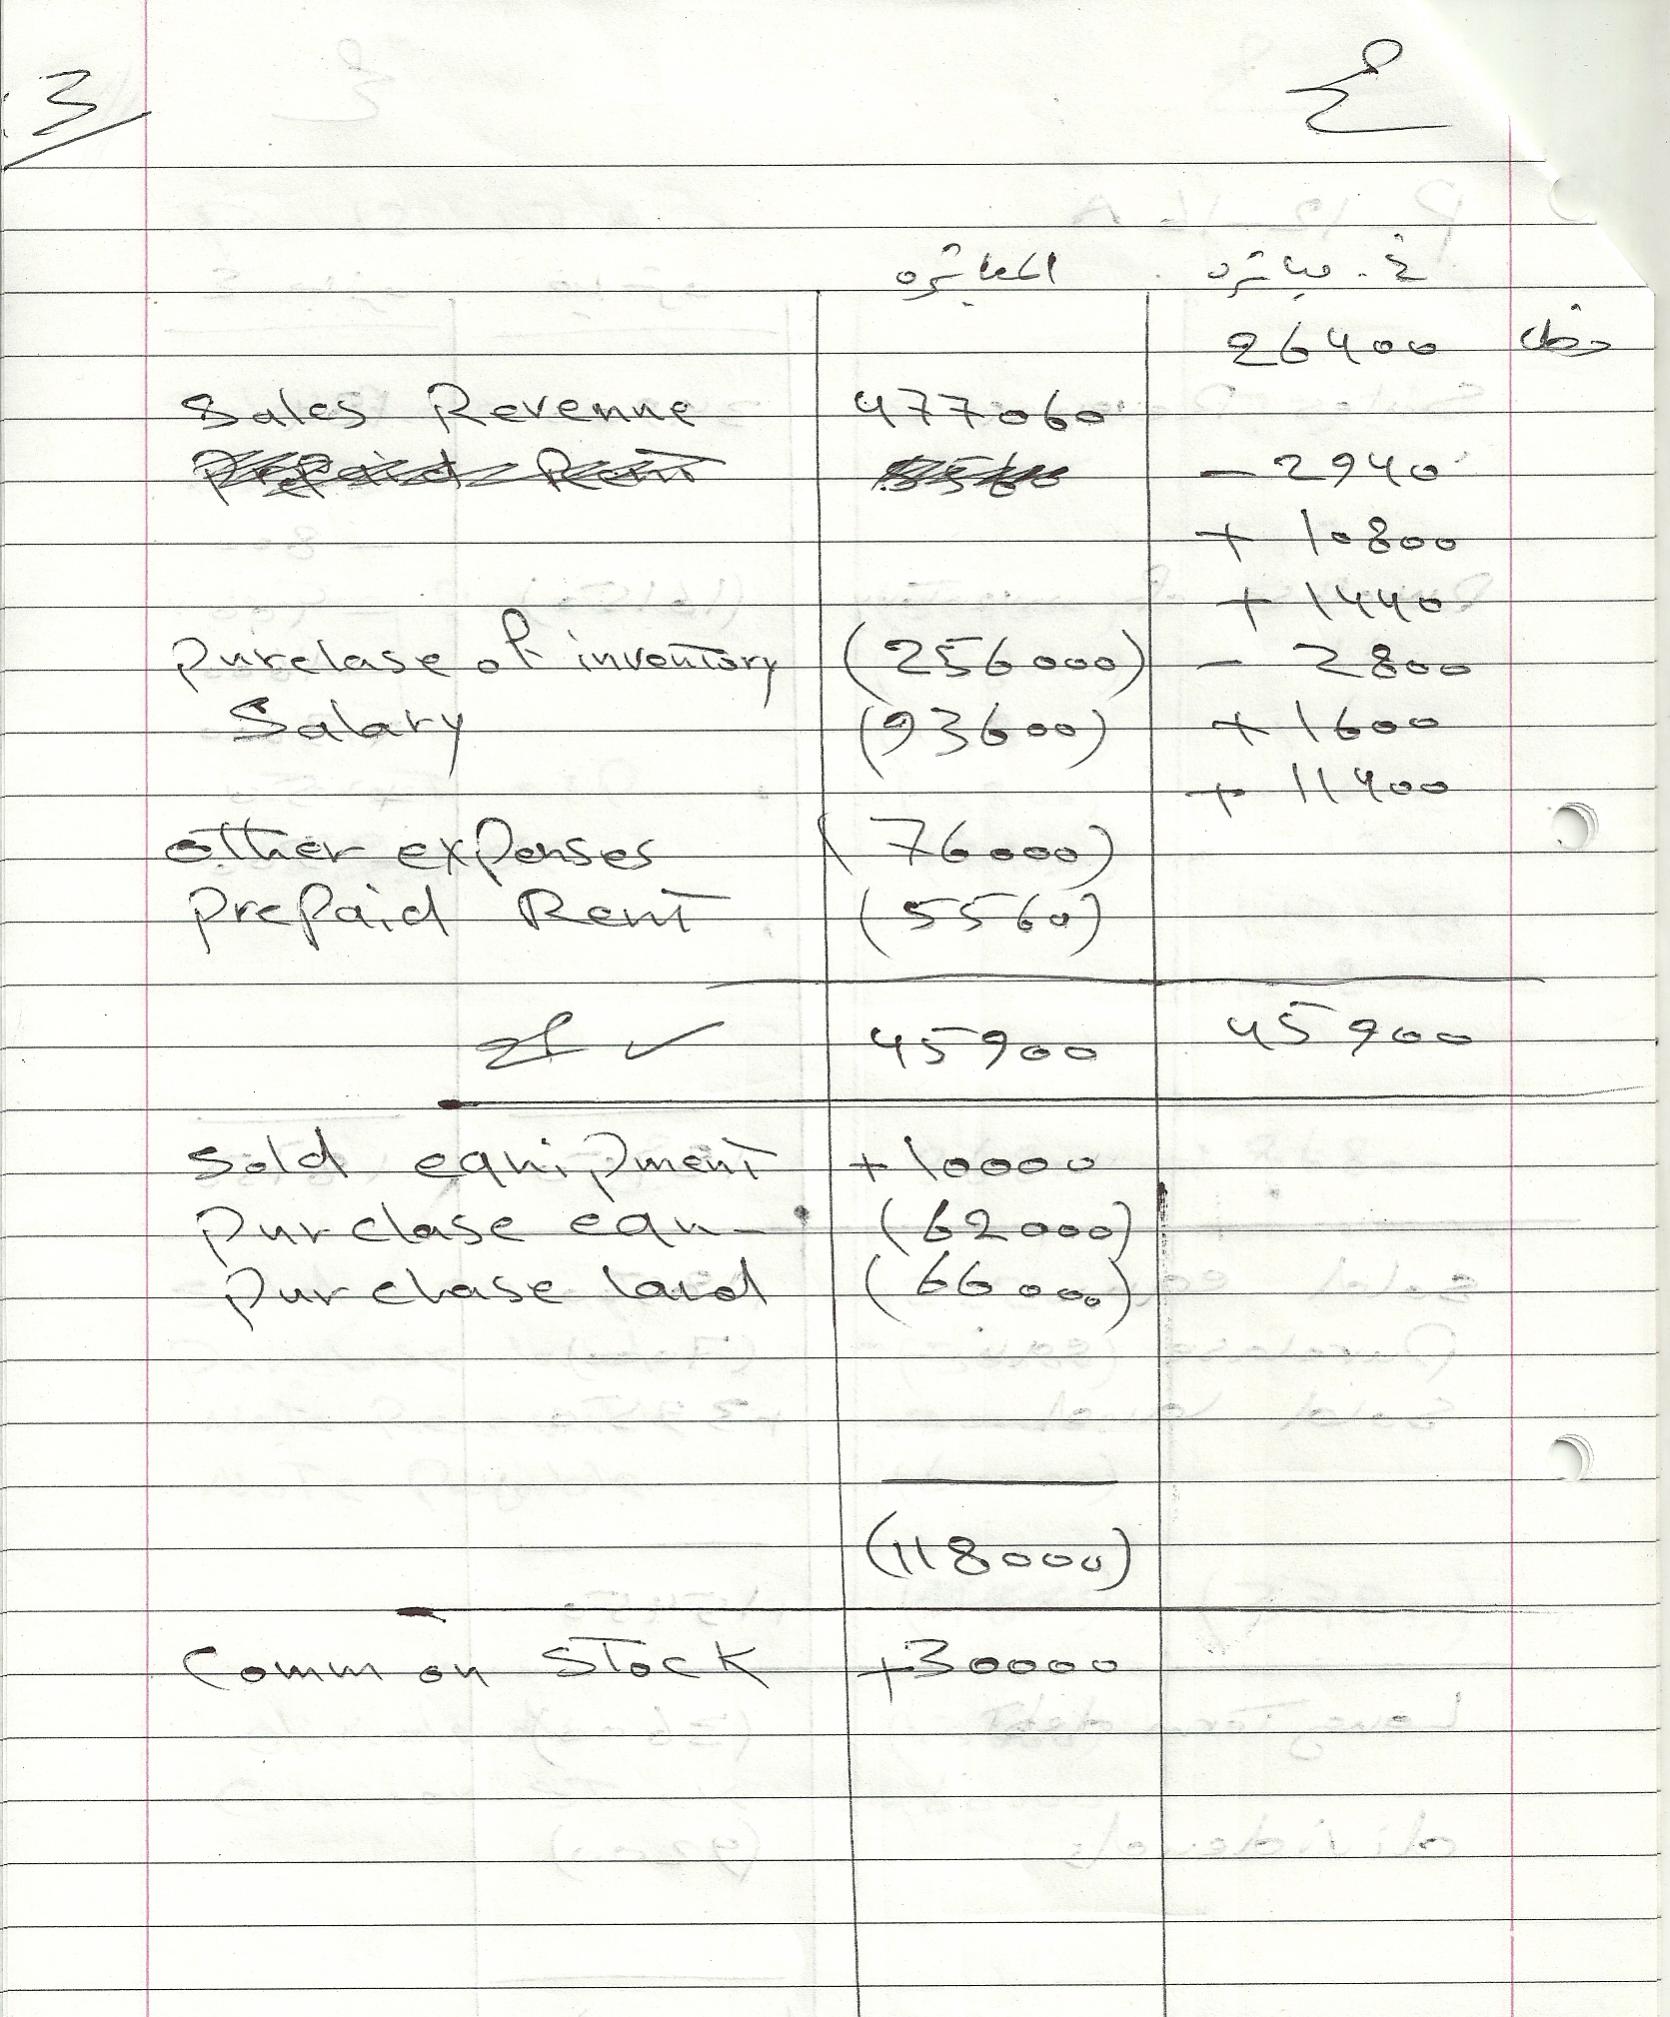 3
المباشره غ. مباشره
26400 دخل
Sales Revenue 477060
Prepaid Rent 5560 - 2940
+ 10800
+ 1440
purclase of inventory (256000) - 2800
Salary (93600) + 1600
+ 11400
other expenses (76000)
prepaid Rent (5560)
45900 45900
Sold equipment +10000
purclase equ- (62000)
purchase land (66000)
(118000)
Common Stock +30000